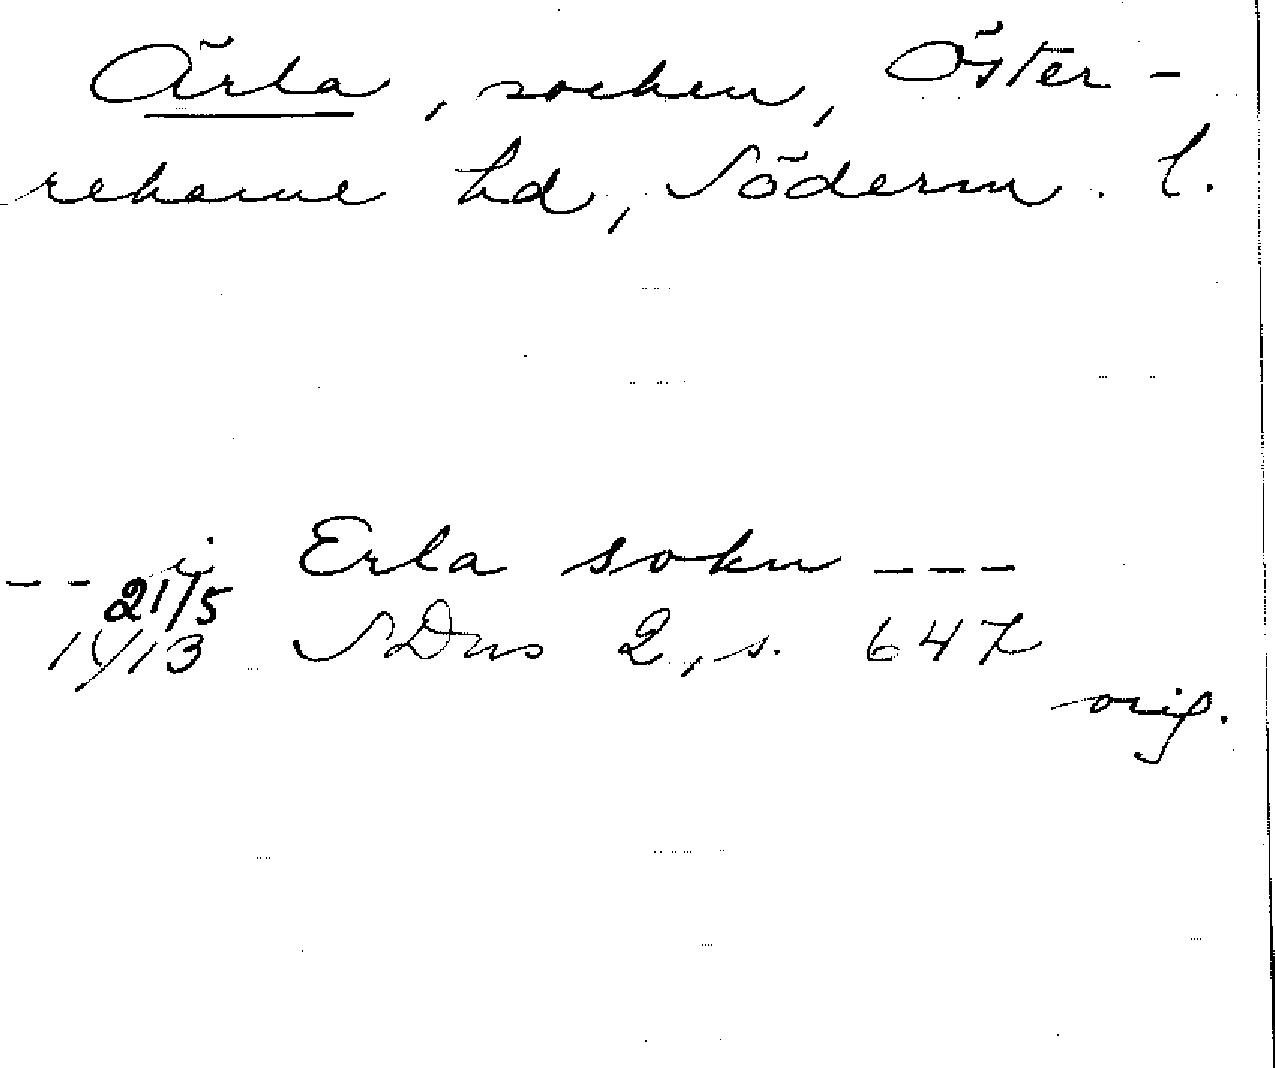 Ärla, socken, Öster-
rekarne hd, Söderm. l.
-- i Erla sokn ---
21/5
1413 SDns 2, s. 647
orig.